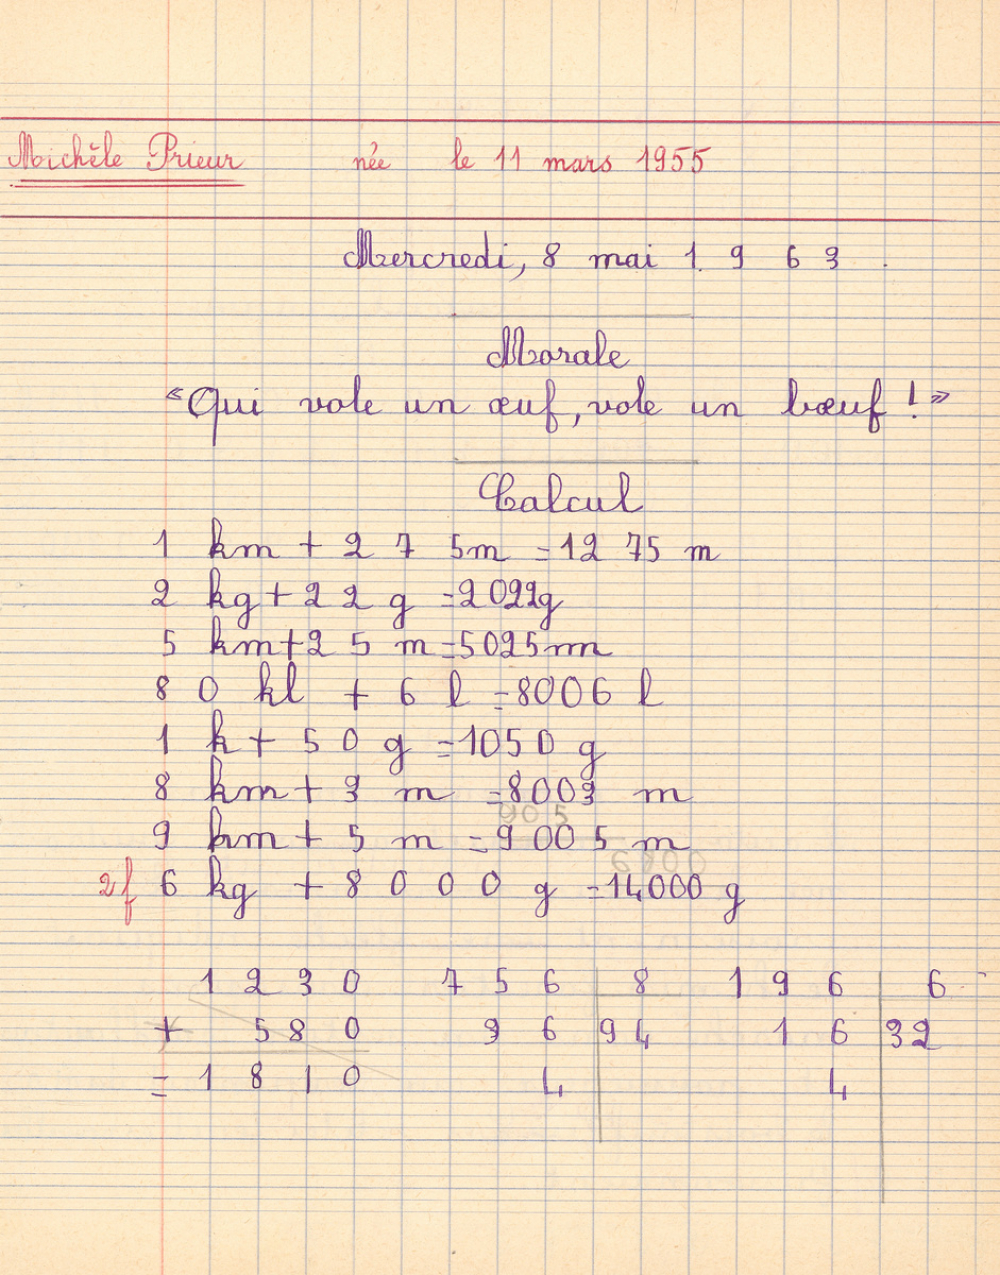 Michèle Prieur née le 11 mars 1955
Mercredi, 8 mai 1963.
Morale
"Qui vole un œuf, vole un bœuf !"
Calcul
1 km + 275m = 1275 m
2 kg + 22 g = 2022g
5 km + 25 m = 5025 m
80 kl + 6 l = 8006 l
1 k + 50 g = 1050 g
8 km + 3 m = 8003 m
905
9 km + 5 m = 9005 m
2f 6 kg + 8000 g = 14000 g
1230 756 8 196 6
+ 580 36 94 16 32
= 1810 4 4